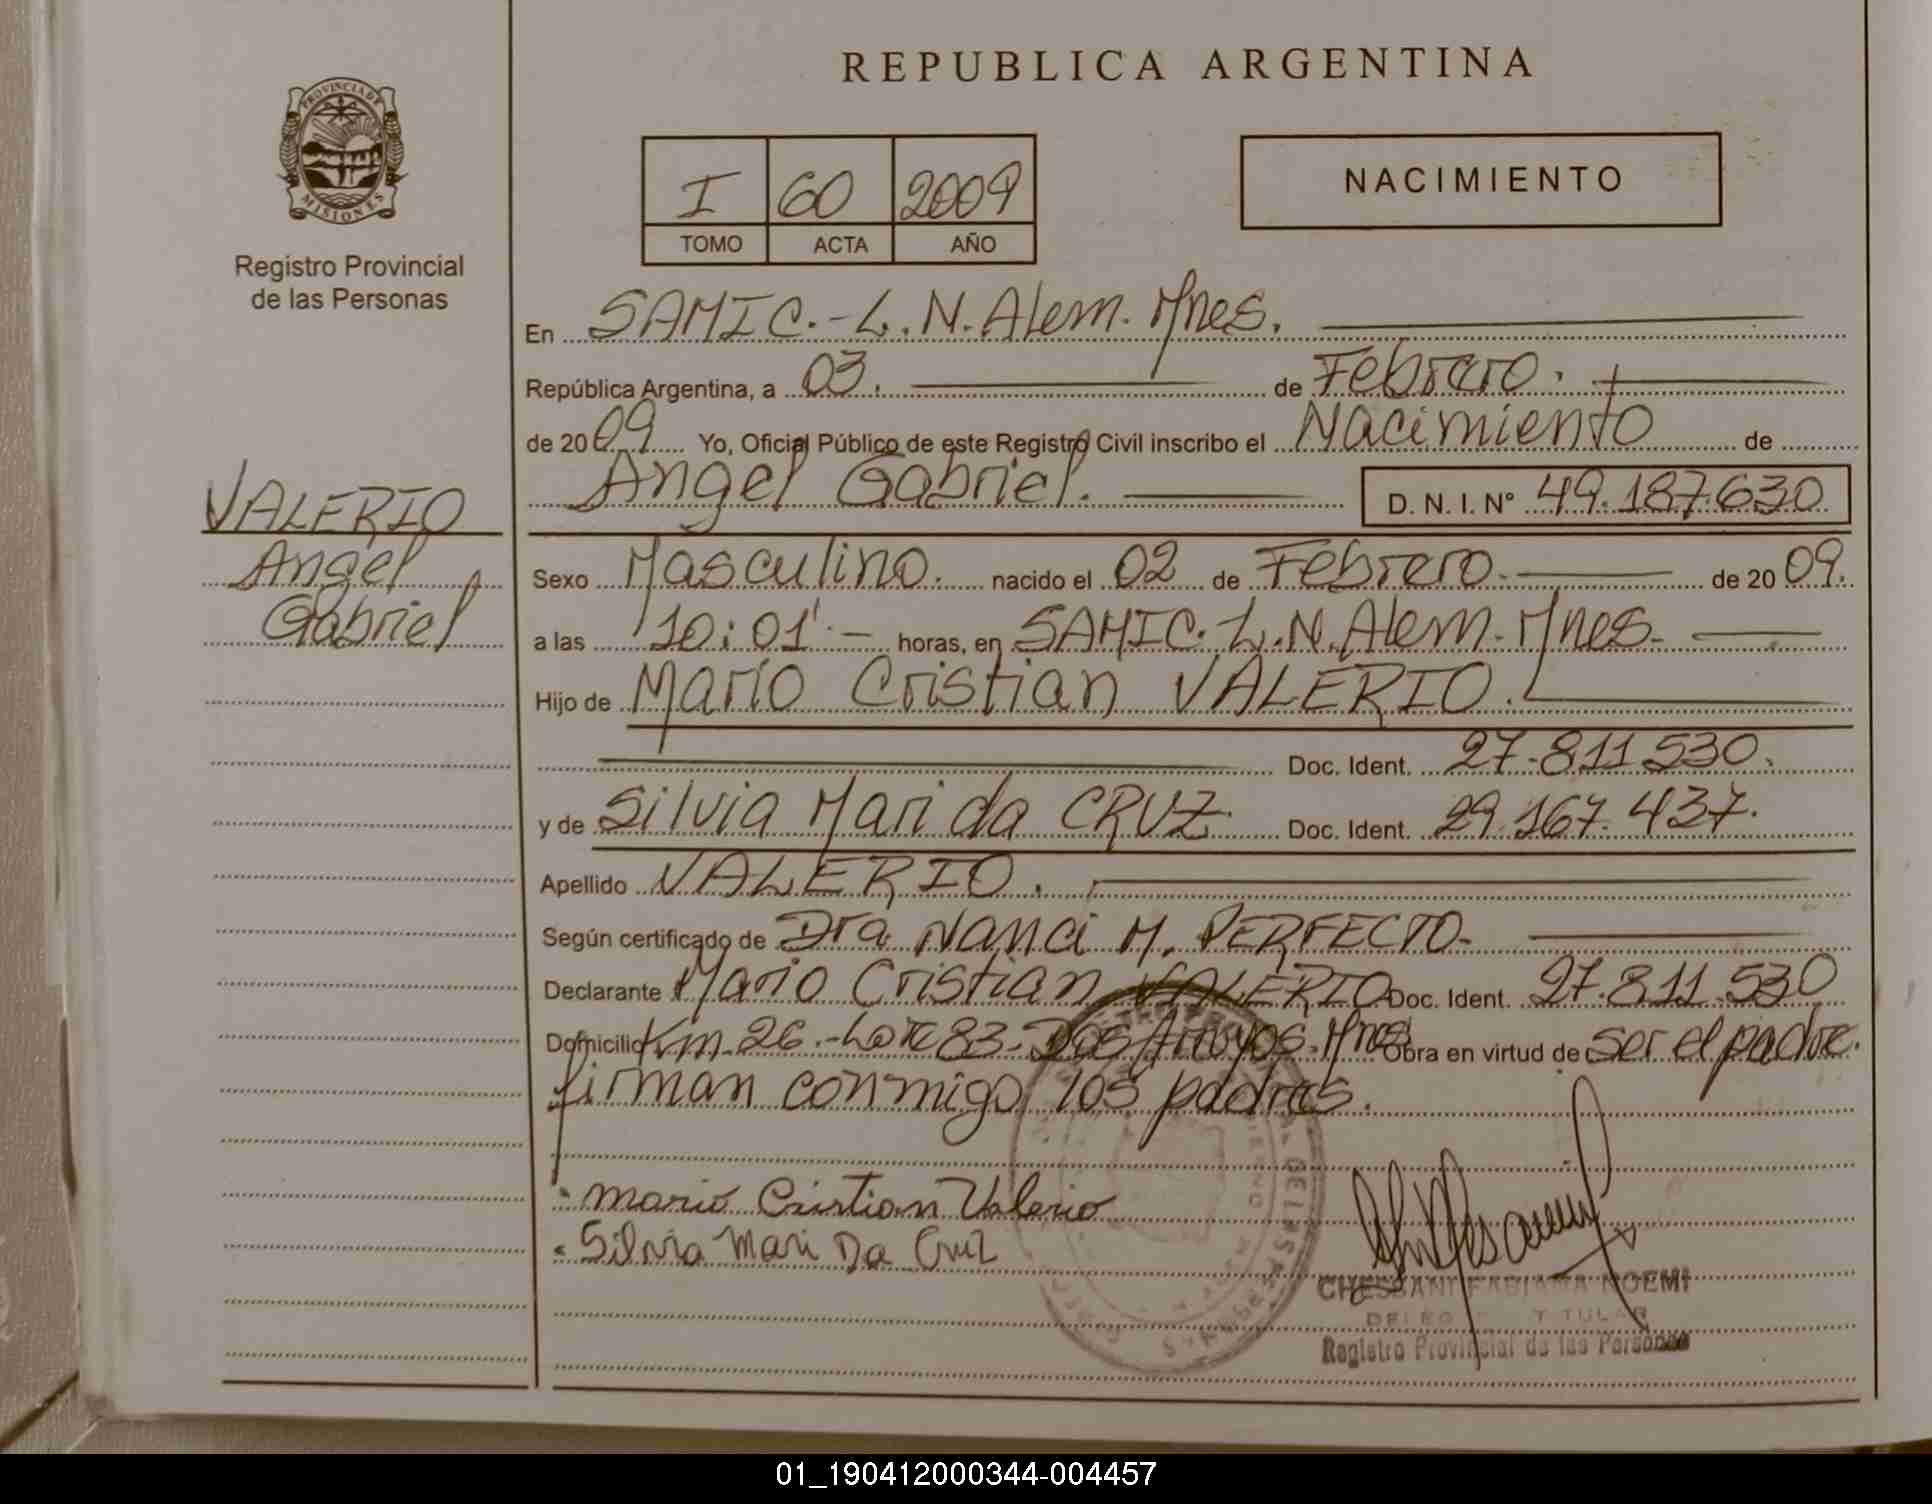 REPUBLICA ARGENTINA
PROVINCIA DE
MISIONES
Registro Provincial
de las Personas
I 60 2009
TOMO ACTA AÑO
NACIMIENTO
En SAMIC.-L.N.Alem. Mnes.
República Argentina, a 03. de Febrero.
de 2009 Yo, Oficial Público de este Registro Civil inscribo el Nacimiento de
Angel Gabriel. D. N. I. N° 49.187.630
VALERIO
Angel
Gabriel
Sexo Masculino. nacido el 02 de Febrero. de 2009.
a las 10:01'.- horas, en SAMIC. L.N.Alem. Mnes.
Hijo de Mario Cristian VALERIO.
Doc. Ident. 27.811.530.
y de Silvia Mari da CRUZ Doc. Ident. 29.167.437.
Apellido VALERIO.
Según certificado de Dra Nanci M. PERFECTO-
Declarante Mario Cristian VALERIO Doc. Ident. 27.811.530
Domicilio Km. 26.-Lote 83-Dos Arroyos. Mnes Obra en virtud de ser el padre.
firman conmigo los padres.
Mario Cristian Valerio
Silvia Mari Da Cruz
CHESSANI FABIANA NOEMI
TITULAR
Registro Provincial de las Personas
01_190412000344-004457